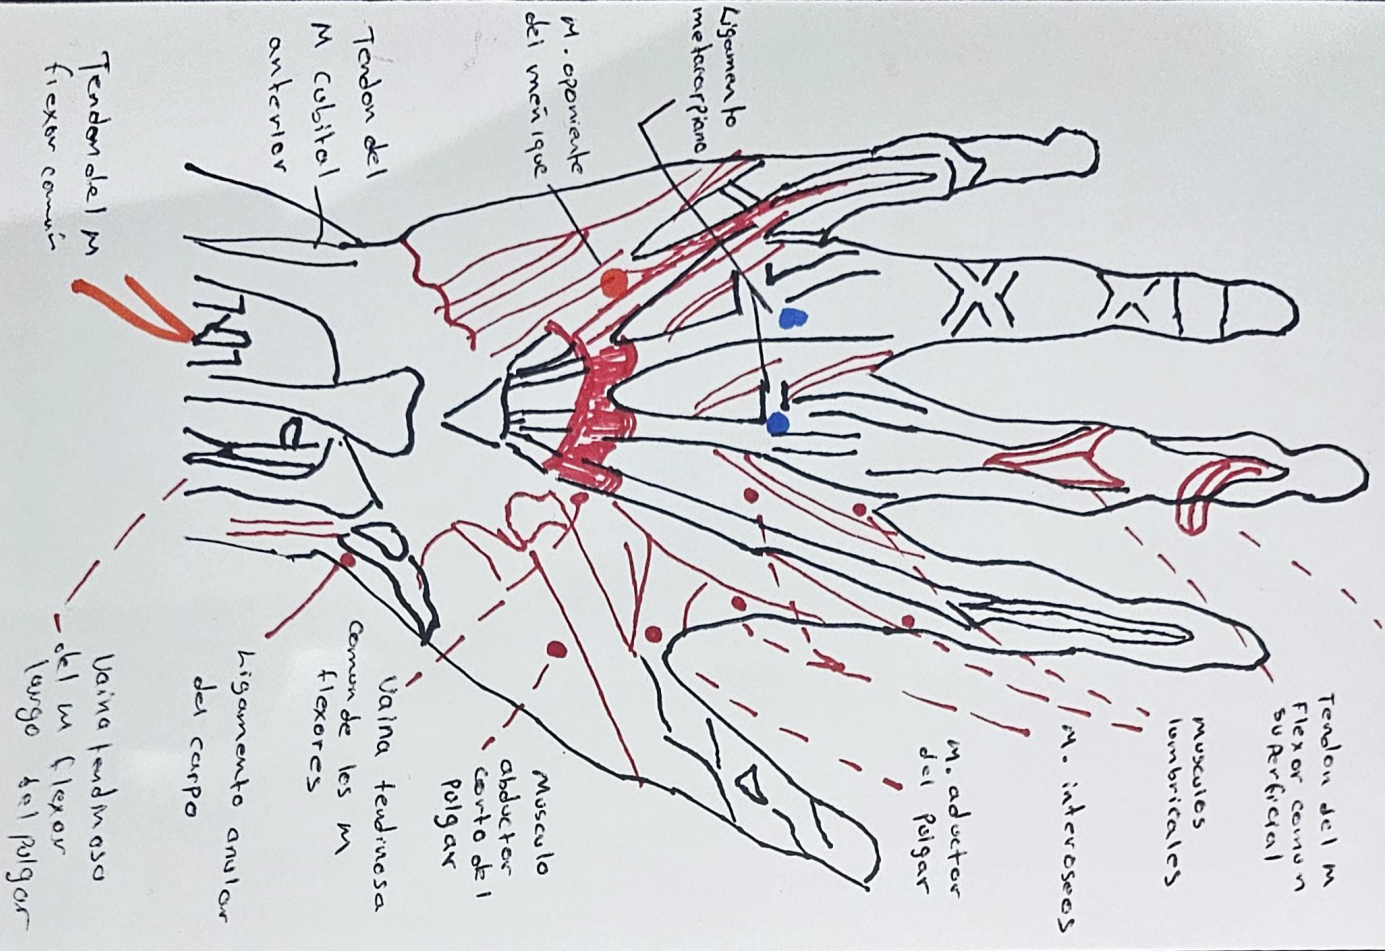 Ligamento
metacarpiano
M. oponiente
del meñique
Tendon del
M cubital
anterior
Tendon del M
flexor común
Tendon del M
Flexor comun
superficial
musculos
lumbricales
M. interoseos
M. aductor
del pulgar
Musculo
abductor
corto del
pulgar
Vaina tendinosa
comun de los M
flexores
Ligamento anular
del carpo
Vaina tendinosa
del M flexor
largo del pulgar